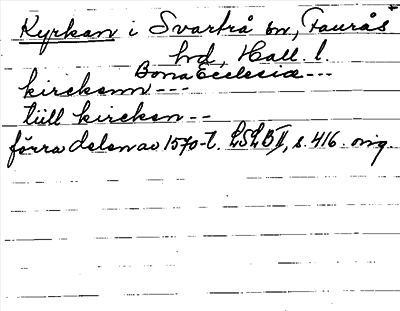 Kyrkan i Svartrå sn, Faurås
hd, Hall. l.
Bona Ecclesiæ ---
kirckenn ---
tiill kircken --
förra delen av 1570-t. LSLB II, s. 416. orig.